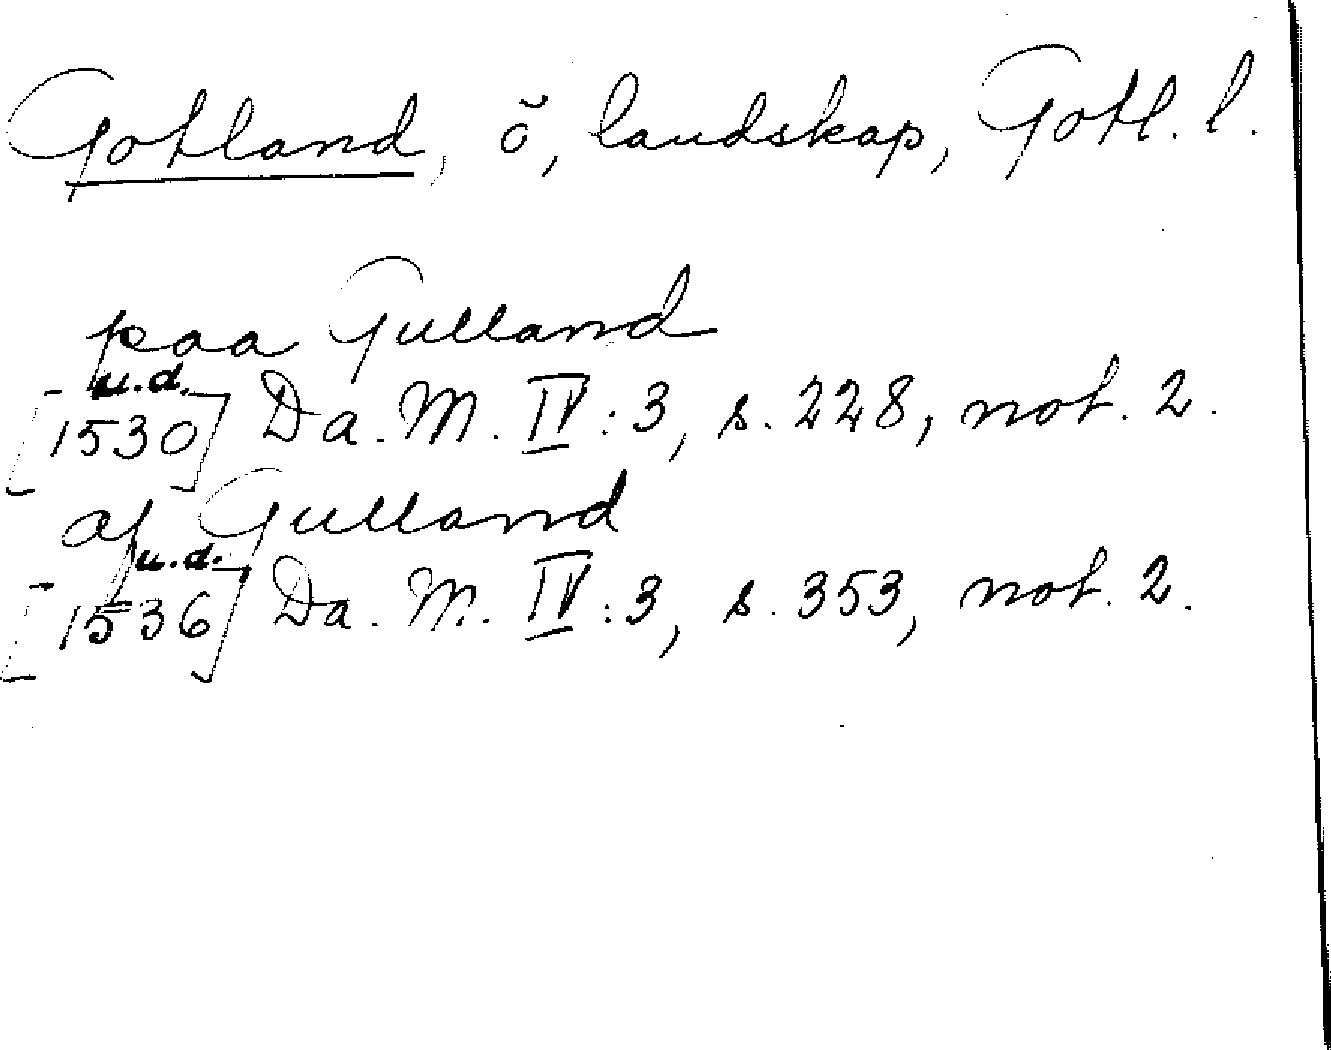 Gotland, ö, landskap, Gotl. l.
paa Gulland
u.d.
[1530] Da. M. IV:3, s. 228, not. 2.
af Gulland
u.d.
[1536] Da. M. IV:3, s. 353, not. 2.